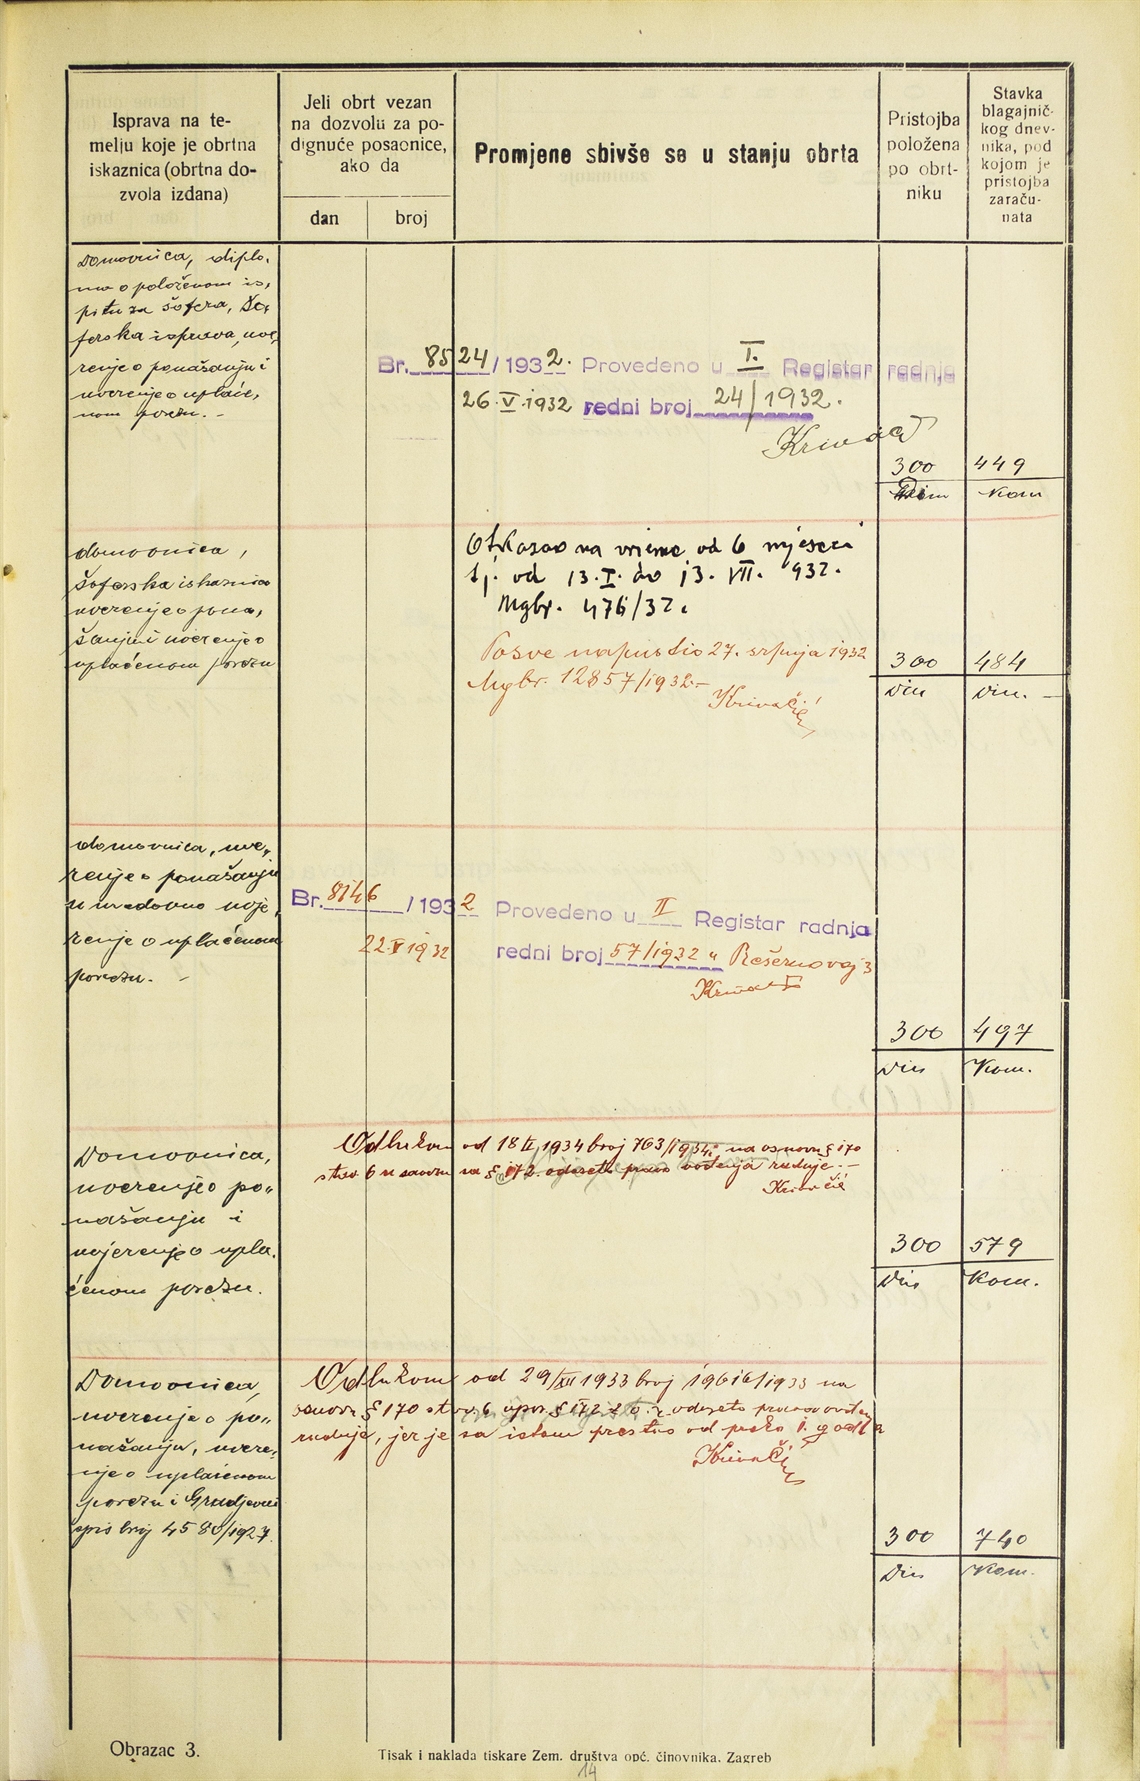 Isprava na te-
melju koje je obrtna
iskaznica (obrtna do-
zvola izdana)
Jeli obrt vezan
na dozvolu za po-
dignuće posaonice,
ako da
dan
broj
Promjene sbivše se u stanju obrta
Pristojba
položena
po obrt-
niku
Stavka
blagajnič-
kog dnev-
nika, pod
kojom je
pristojba
zaraču-
nata
Domovnica, diplo-
ma o položenom is-
pitu za šofera, šo-
ferska isprava, uve-
renje o ponašanju i
uverenje o uplaće-
nom porezu. -
Br. 8524/1932. Provedeno u I. Registar radnja
26.V.1932 redni broj 24/1932.
300 449
Din Kom
domovnica,
šoferska iskaznica
uverenje o pona-
šanju i uverenje o
uplaćenom porezu
Otkazao na vrieme od 6 mjeseci
tj. od 13.I. do 13. VII. 932.
Mgbr. 476/32.
Posve napustio 27. srpnja 1932
Mgbr. 12857/1932.-
Krivačić
300 484
Din Din. -
domovnica, uve-
renje o ponašanju
u uvje-
renje o uplaćenom
porezu. -
Br. 8146/1932 Provedeno u II Registar radnja
22.V.1932 redni broj 57/1932 u Prešernovoj 3
300 497
Din Kom.
Domovnica,
uverenje o po-
našanju i
uvjerenje o upla-
ćenom porezu.
Odlukom od 18 1934 broj 763/1934. na osnovu § 170
stav. 6 u savezu sa § 172. oduzeto pravo vođenja radnje. -
Krivačić
300 579
Din Kom.
Domovnica,
uverenje o po-
našanju, uvere-
nje o uplaćenom
porezu i
spis broj 4580/1927.
Odlukom od 29/XII 1933 broj 19616/1933 na
osnovu § 170 stav. 6 § 172 oduzeto pravo
radnje, jer je sa istom prestao od preko 1. godine
Krivačić
300 740
Din Kom.
Obrazac 3.
Tisak i naklada tiskare Zem. društva opć. činovnika, Zagreb
14